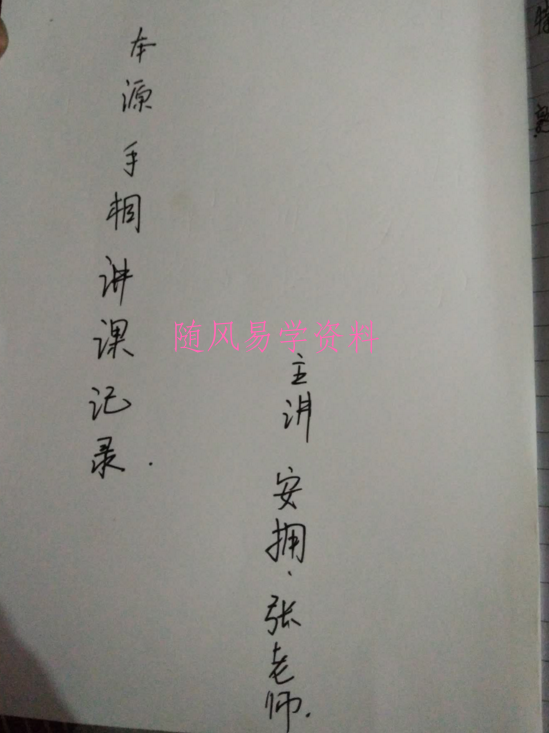 本源手相讲课记录.
主讲 安拥·张老师.
随风易学资料